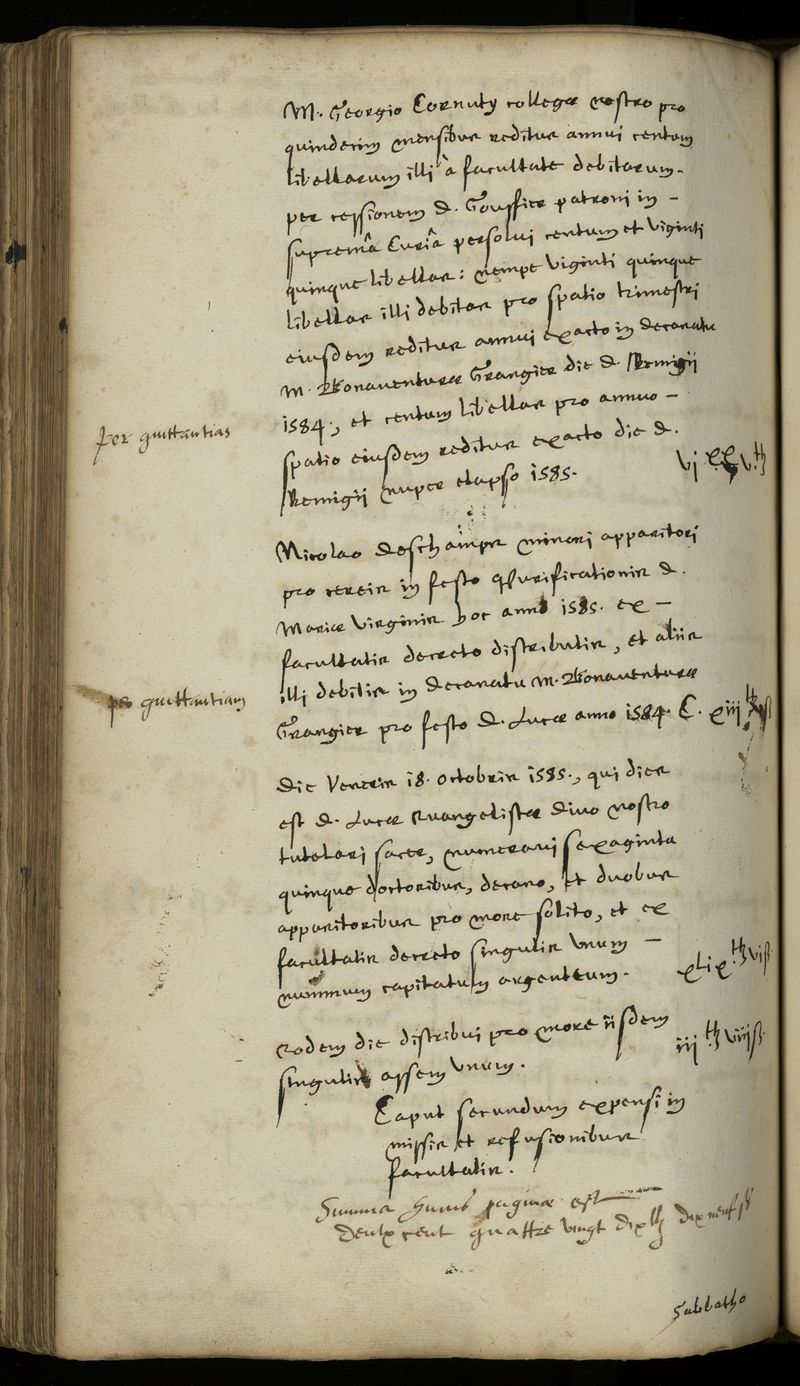 M. Georgio Cornuty collegæ nostro pro
quindecim mensibus reditus annui centum
libellarum illi à facultate debitarum.
per cessionem D. Gouffier patroni in -
supremâ Curiâ persolui centum et viginti
quinque libellas: nempe viginti quinque
libellas illi debitas pro spatio trimestri
eiusdem reditus annui exacto in decanatu
M. Bonaventuræ Grangier die D. Remigii
1584., et centum libellas pro annuo -
per quittantias
spatio eiusdem reditus exacto die D.
Remigij nuper elapso 1585. vj xx v. ℔
Nicolao deschamps minori apparitori
pro cereis in festo Purificationis D.
Mariæ Virginis hoc anno 1585. ex -
facultatis decreto distributis, et aliis
illi debitis in decanatu M. Bonaventuræ
per quittantiam
Grangier pro festo D. Lucæ anno 1584. C. xiij ℔
Die Veneris 18. octobris 1585., qui dies
est D. Lucæ Evangelistæ divo nostro
tutelari sacer, numeravi sexaginta
quinque doctoribus, decano, et duobus
apparitoribus pro more solito, et ex
facultatis decreto singulis unum -
nummum capitatum argenteum. xlix ℔ viß
Eodem die distribui pro more iisdem
singulis assem unum. iij ℔ viijß
Caput secundum expensi in
missis et refusionibus
facultatis.
Summa huius paginæ est
Deulx cent quattre vingt dix ℔ dix neuf ß
Sabbatho